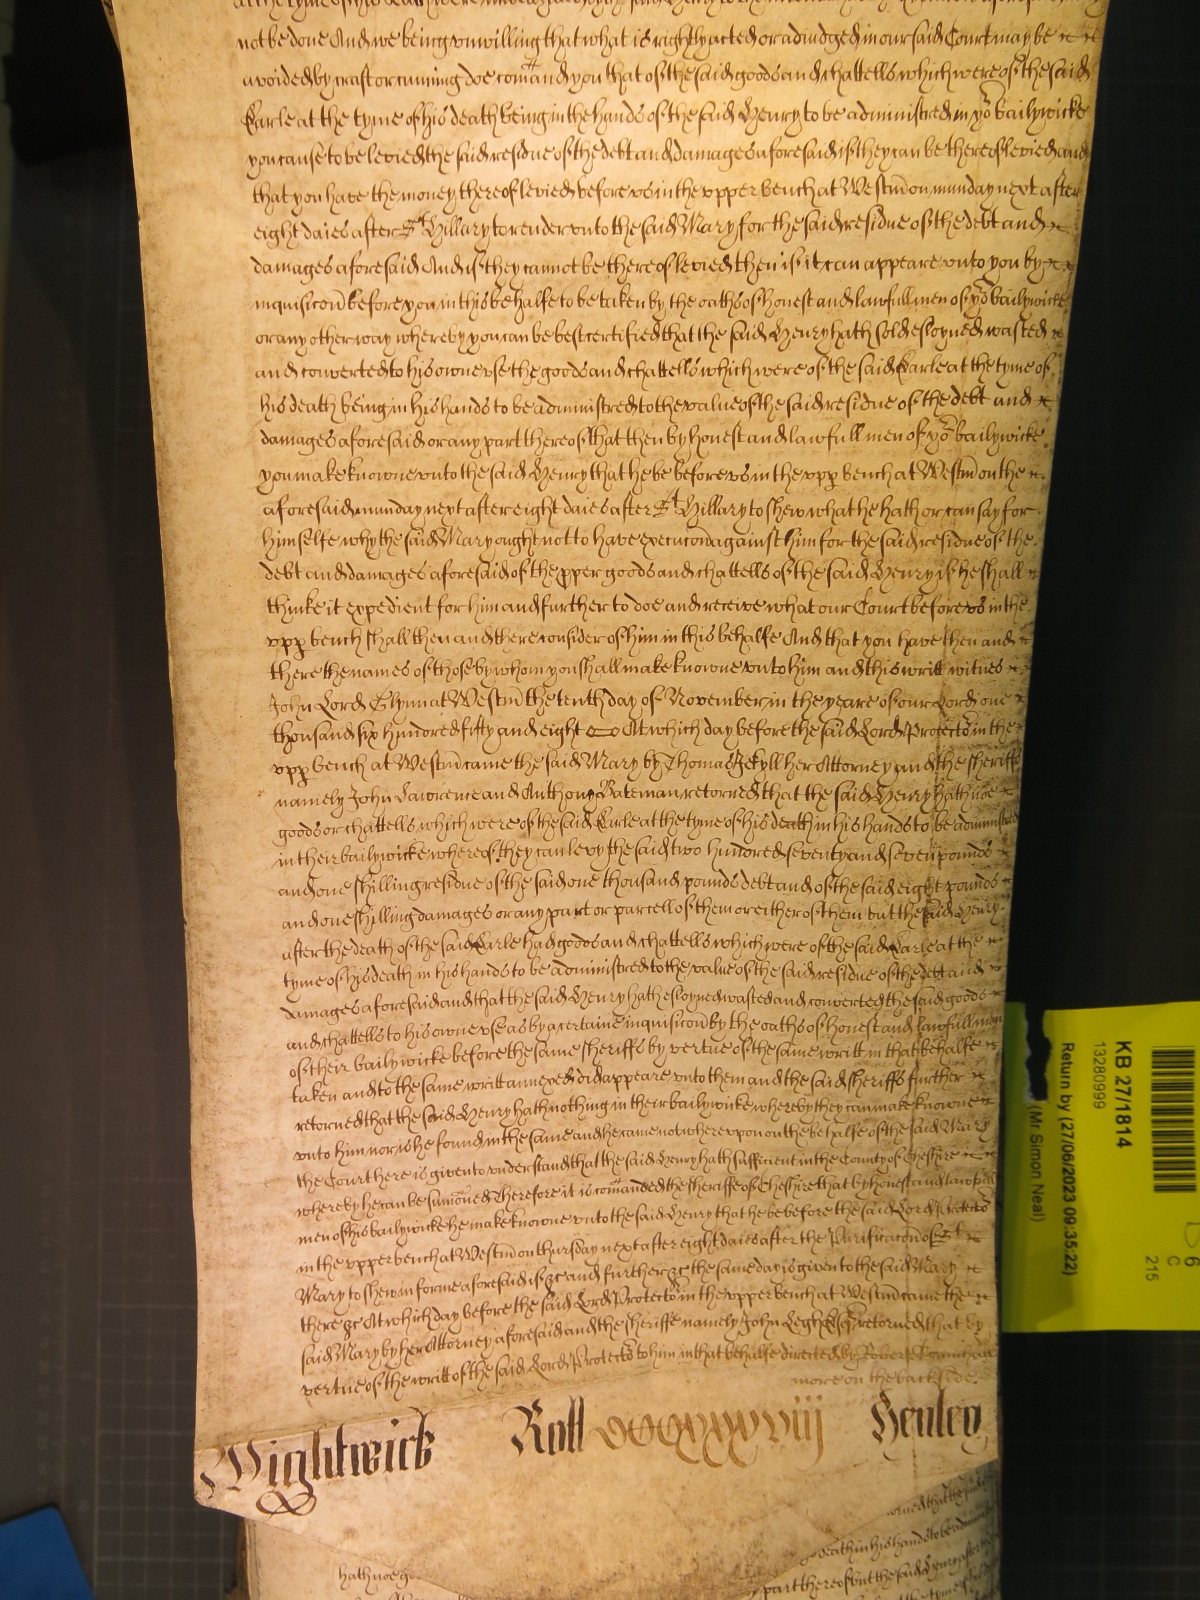 not be done And we being unwilling that what is rightly acted or adiudged in our said Court may be
avoided by craft or cunning doe comand you that of the said goods and chattells which were of the said
Earle at the tyme of his death being in the hands of the said Henry to be administred in yor bailywicke
you cause to be levied the said residue of the debt and damages aforesaid if they can be thereof levied and
that you have the money thereof levied before us in the upper bench at Westm on munday next after
eight daies after St Hillary to render unto the said Mary for the said residue of the debt and
damages aforesaid And if they cannot be thereof levied then if it can appeare unto you by
inquisicon before you in this behalfe to be taken by the oaths of honest and lawfull men of yor bailywicke
or any other way whereby you can be best certified that the said Henry hath sold esloyned wasted
and converted to his owne use the goods and chattells which were of the said Earle at the tyme of
his death being in his hands to be administred to the value of the said residue of the debt and
damages aforesaid or any part thereof that then by honest and lawfull men of yor bailywicke
you make knowne unto the said Henry that he be before us in the upp bench at Westm on the
aforesaid munday next after eight daies after St Hillary to shew what he hath or can say for
himselfe why the said Mary ought not to have execucon against him for the said residue of the
debt and damages aforesaid of the pper goods and chattells of the said Henry if he shall
thinke it expedient for him and further to doe and receive what our Court before us in the
upp bench shall then and there consider of him in this behalfe And that you have then and
there the names of those by whom you shall make knowne unto him and this writt witnes
John Lord Glyn at Westm the tenth day of November in the yeare of our Lord one
thousand six hundred fifty and eight At which day before the said Lord Protector in the
upp bench at Westm came the said Mary by Thomas Jekyll her Attorney and the sheriffs
namely John Lawrence and Anthony Bateman retorned that the said Henry hath noe
goods or chattells which were of the said Earle at the tyme of his death in his hands to be administred
in their bailywicke whereof they can levy the said two hundred seventy and seven pounds
and one shilling residue of the said one thousand pounds debt and of the said eight pounds
and one shilling damages or any part or parcell of them or either of them but the said Henry
after the death of the said Earle had goods and chattells which were of the said Earle at the
tyme of his death in his hands to be administred to the value of the said residue of the debt and
damages aforesaid and that the said Henry hath esloyned wasted and converted the said goods
and chattells to his owne use as by a certaine inquisicon by the oaths of honest and lawfull men
of their bailywicke before the same sheriffs by vertue of the same writt in that behalfe
taken and to the same writt annexed did appeare unto them and the said sheriffs further
retorned that the said Henry hath nothing in their bailywicke whereby they can make knowne
unto him nor is he found in the same and he came not whereupon on the behalfe of the said Mary
the Court here is given to understand that the said Henry hath sufficient in the County of Cheshire
whereby he can be sumoned Therefore it is comanded the sheriffe of Cheshire that by honest and lawfull
men of his bailywicke he make knowne unto the said Henry that he be before the said Lord Protector
in the upper bench at Westm on thursday next after eight daies after the Purificacon of St
Mary to shew in forme aforesaid if &c and further &c the same day is given to the said Mary
there &c At which day before the said Lord Protector in the upper bench at Westm came the
said Mary by her Attorney aforesaid and the sheriffe namely John Legh Esqr retorned that by
vertue of the writt of the said Lord Protector to him in that behalfe directed by Robert
more on the backside
Wightwick Roll Henley
orned that the said
hath noe g
death in his hands to be admin
part thereof but the said Henry after the
KB 27/1814
13280999
Return by (27/06/2023 09:35:22)
(Mr Simon Neal)
6
C
215